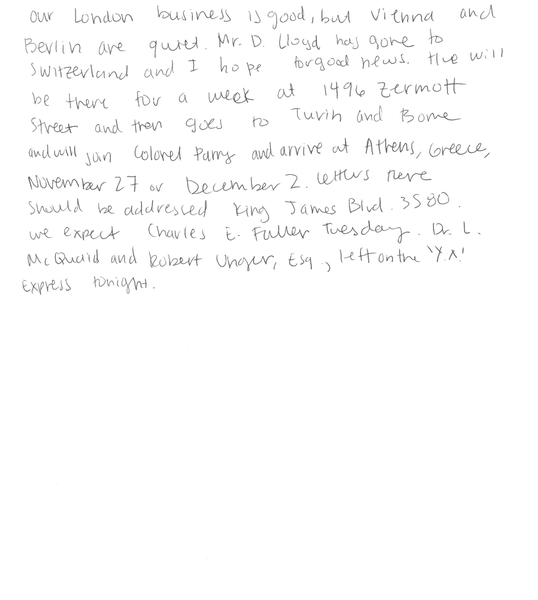 our London business is good, but Vienna and
Berlin are quiet. Mr. D. Lloyd has gone to
Switzerland and I hope for good news. He will
be there for a week at 1496 Zermott
Street and then goes to Turin and Rome
and will join Colonel Parry and arrive at Athens, Greece,
November 27 or December 2. Letters here
should be addressed King James Blvd. 3580.
we expect Charles E. Fuller Tuesday. Dr. L.
McQuaid and Robert Unger, Esq., left on the 'Y.X.'
Express tonight.